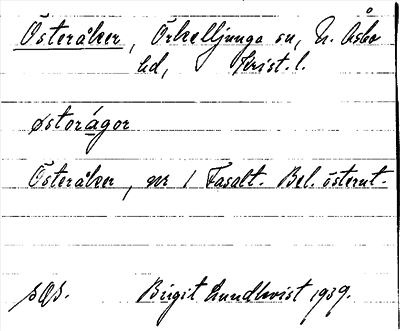 Österåker, Örkelljunga sn, N. Åsbo
hd, Krist. l.
østorágor
Österåker, nr 1 Fasalt. Bel. österut.
Birgit Lundkvist 1939.